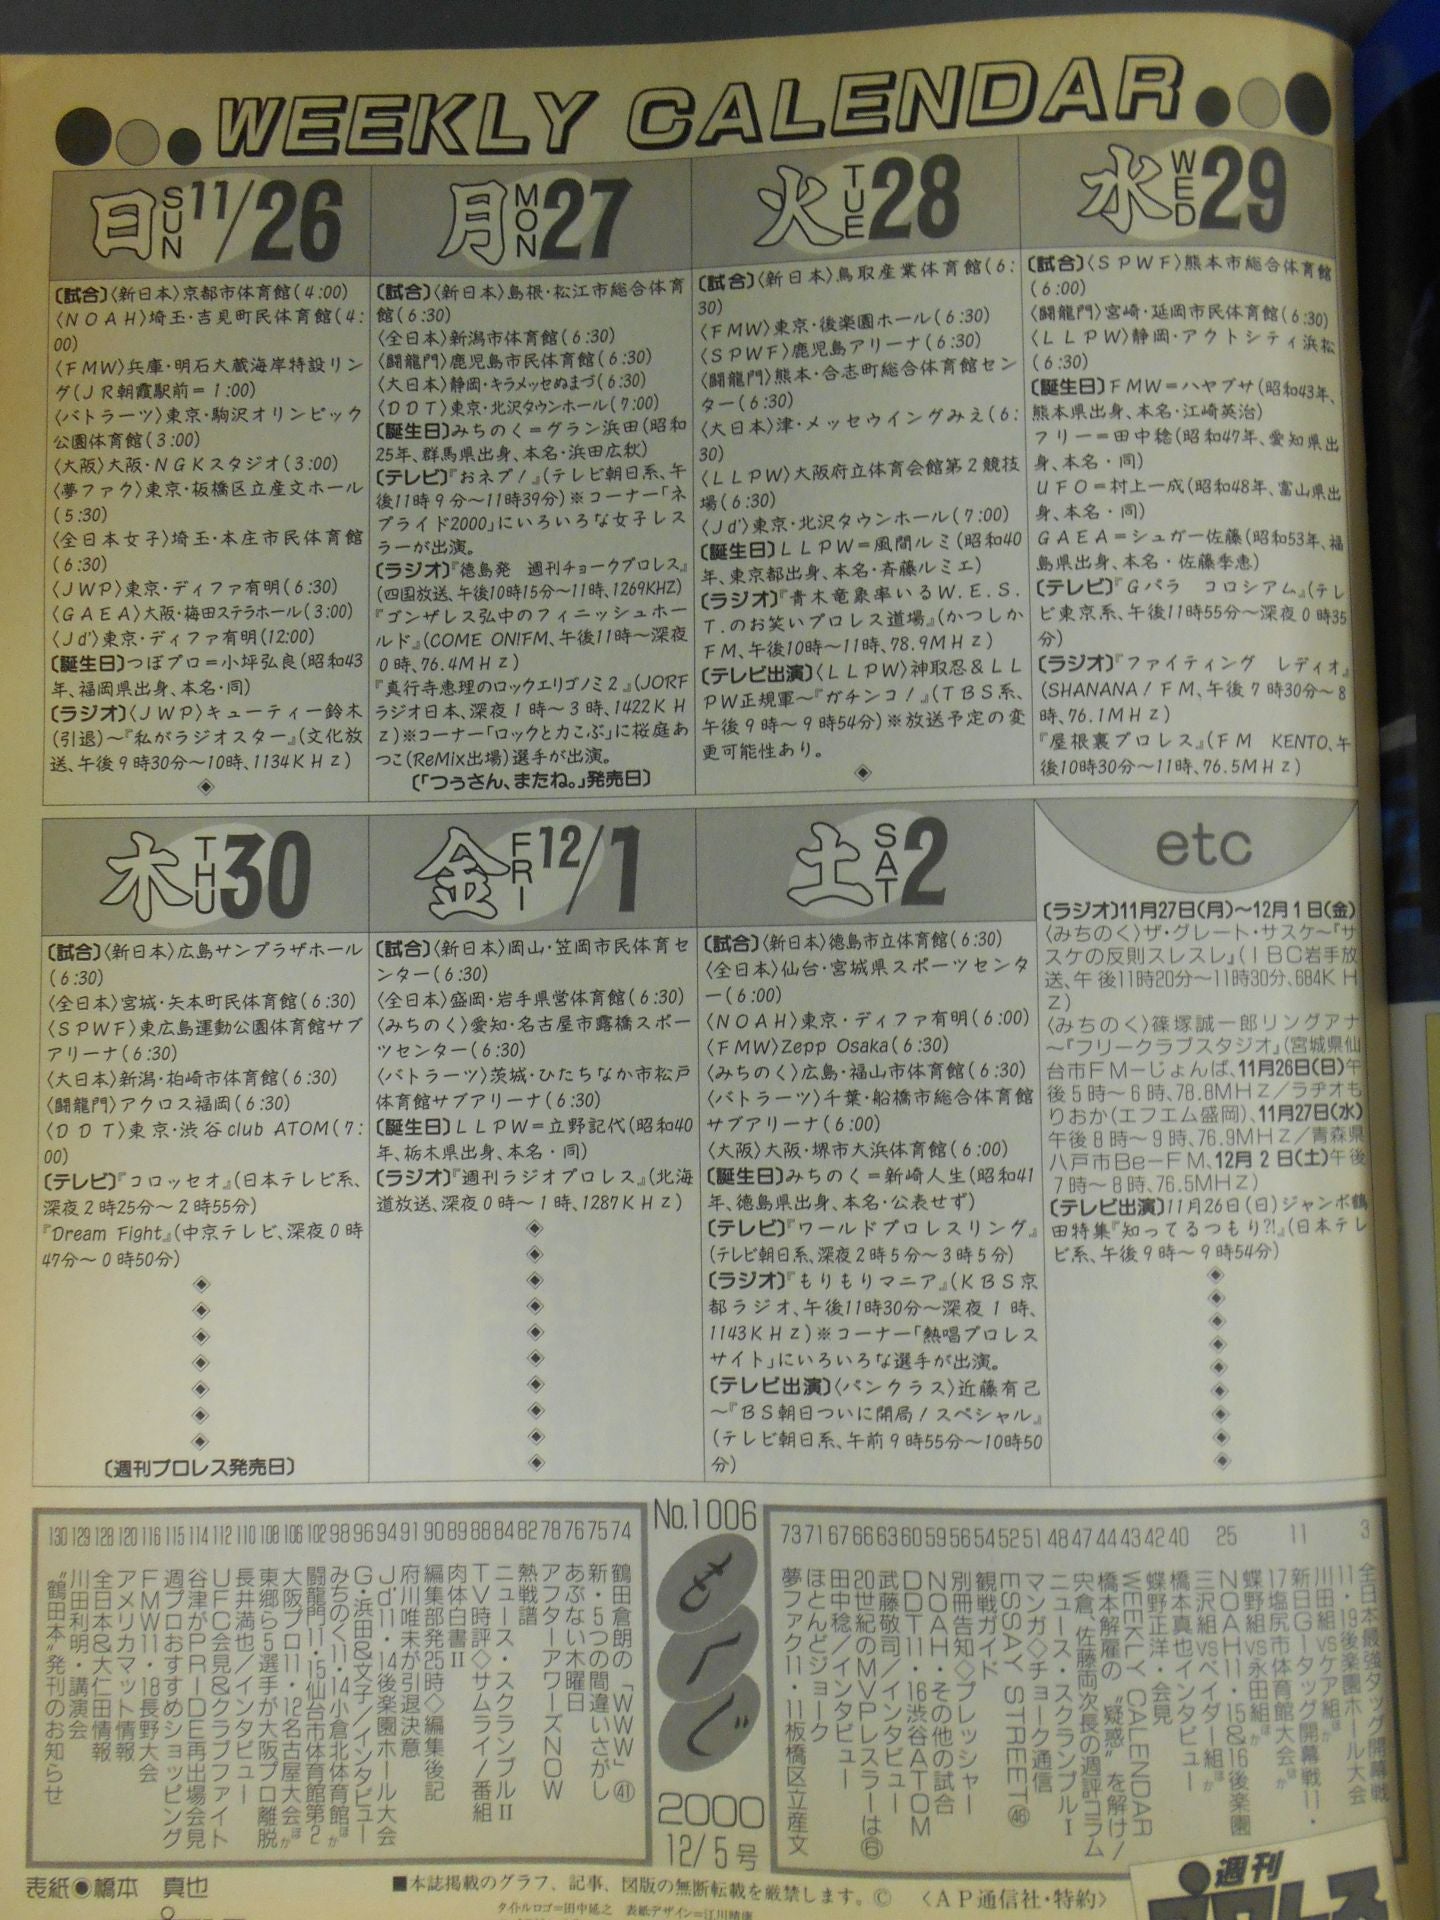 WEEKLY CALENDAR
日 SUN 11/26
〔試合〕〈新日本〉京都市体育館(4:00)
〈NOAH〉埼玉・吉見町民体育館(4:
00)
〈FMW〉兵庫・明石大蔵海岸特設リン
グ(JR朝霧駅前=1:00)
〈バトラーツ〉東京・駒沢オリンピック
公園体育館(3:00)
〈大阪〉大阪・NGKスタジオ(3:00)
〈夢ファク〉東京・板橋区立産文ホール
(5:30)
〈全日本女子〉埼玉・本庄市民体育館
(6:30)
〈JWP〉東京・ディファ有明(6:30)
〈GAEA〉大阪・梅田ステラホール(3:00)
〈Jd'〉東京・ディファ有明(12:00)
〔誕生日〕つぼプロ=小坪弘良(昭和43
年、福岡県出身、本名・同)
〔ラジオ〕〈JWP〉キューティー鈴木
(引退)〜『私がラジオスター』(文化放
送、午後9時30分〜10時、1134KHZ)
月 MON 27
〔試合〕〈新日本〉島根・松江市総合体育
館(6:30)
〈全日本〉新潟市体育館(6:30)
〈闘龍門〉鹿児島市民体育館(6:30)
〈大日本〉静岡・キラメッセぬまづ(6:30)
〈DDT〉東京・北沢タウンホール(7:00)
〔誕生日〕みちのく=グラン浜田(昭和
25年、群馬県出身、本名・浜田広秋)
〔テレビ〕『おネプ!』(テレビ朝日系、午
後11時9分〜11時39分)※コーナー「ネ
プライド2000」にいろいろな女子レス
ラーが出演。
〔ラジオ〕『徳島発 週刊チョークプロレス』
(四国放送、午後10時15分〜11時、1269KHZ)
『ゴンザレス弘中のフィニッシュホー
ルド』(COME ON!FM、午後11時〜深夜
0時、76.4MHZ)
『真行寺恵理のロックエリゴノミ2』(JORF
ラジオ日本、深夜1時〜3時、1422KH
Z)※コーナー「ロックと力こぶ」に桜庭あ
つこ(ReMix出場)選手が出演。
〔「つぅさん、またね。」発売日〕
火 TUE 28
〔試合〕〈新日本〉鳥取産業体育館(6:
30)
〈FMW〉東京・後楽園ホール(6:30)
〈SPWF〉鹿児島アリーナ(6:30)
〈闘龍門〉熊本・合志町総合体育館セン
ター(6:30)
〈大日本〉津・メッセウイングみえ(6:
30)
〈LLPW〉大阪府立体育会館第2競技
場(6:30)
〈Jd'〉東京・北沢タウンホール(7:00)
〔誕生日〕LLPW=風間ルミ(昭和40
年、東京都出身、本名・斉藤ルミエ)
〔ラジオ〕『青木竜象率いるW.E.S.
T.のお笑いプロレス道場』(かつしか
FM、午後10時〜11時、78.9MHZ)
〔テレビ出演〕〈LLPW〉神取忍&LL
PW正規軍〜『ガチンコ!』(TBS系、
午後9時〜9時54分)※放送予定の変
更可能性あり。
水 WED 29
〔試合〕〈SPWF〉熊本市総合体育館
(6:00)
〈闘龍門〉宮崎・延岡市民体育館(6:30)
〈LLPW〉静岡・アクトシティ浜松
(6:30)
〔誕生日〕FMW=ハヤブサ(昭和43年、
熊本県出身、本名・江崎英治)
フリー=田中稔(昭和47年、愛知県出
身、本名・同)
UFO=村上一成(昭和48年、富山県出
身、本名・同)
GAEA=シュガー佐藤(昭和53年、福
島県出身、本名・佐藤季恵)
〔テレビ〕『Gパラ コロシアム』(テレ
ビ東京系、午後11時55分〜深夜0時35
分)
〔ラジオ〕『ファイティング レディオ』
(SHANANA!FM、午後7時30分〜8
時、76.1MHZ)
『屋根裏プロレス』(FM KENTO、午
後10時30分〜11時、76.5MHZ)
木 THU 30
〔試合〕〈新日本〉広島サンプラザホール
(6:30)
〈全日本〉宮城・矢本町民体育館(6:30)
〈SPWF〉東広島運動公園体育館サブ
アリーナ(6:30)
〈大日本〉新潟・柏崎市体育館(6:30)
〈闘龍門〉アクロス福岡(6:30)
〈DDT〉東京・渋谷club ATOM(7:
00)
〔テレビ〕『コロッセオ』(日本テレビ系、
深夜2時25分〜2時55分)
『Dream Fight』(中京テレビ、深夜0時
47分〜0時50分)
〔週刊プロレス発売日〕
金 FRI 12/1
〔試合〕〈新日本〉岡山・笠岡市民体育セ
ンター(6:30)
〈全日本〉盛岡・岩手県営体育館(6:30)
〈みちのく〉愛知・名古屋市露橋スポー
ツセンター(6:30)
〈バトラーツ〉茨城・ひたちなか市松戸
体育館サブアリーナ(6:30)
〔誕生日〕LLPW=立野記代(昭和40
年、栃木県出身、本名・同)
〔ラジオ〕『週刊ラジオプロレス』(北海
道放送、深夜0時〜1時、1287KHZ)
土 SAT 2
〔試合〕〈新日本〉徳島市立体育館(6:30)
〈全日本〉仙台・宮城県スポーツセンタ
ー(6:00)
〈NOAH〉東京・ディファ有明(6:00)
〈FMW〉Zepp Osaka(6:30)
〈みちのく〉広島・福山市体育館(6:30)
〈バトラーツ〉千葉・船橋市総合体育館
サブアリーナ(6:00)
〈大阪〉大阪・堺市大浜体育館(6:00)
〔誕生日〕みちのく=新崎人生(昭和41
年、徳島県出身、本名・公表せず)
〔テレビ〕『ワールドプロレスリング』
(テレビ朝日系、深夜2時5分〜3時5分)
〔ラジオ〕『もりもりマニア』(KBS京
都ラジオ、午後11時30分〜深夜1時、
1143KHZ)※コーナー「熱唱プロレス
サイト」にいろいろな選手が出演。
〔テレビ出演〕〈パンクラス〉近藤有己
〜『BS朝日ついに開局!スペシャル』
(テレビ朝日系、午前9時55分〜10時50
分)
etc
〔ラジオ〕11月27日(月)〜12月1日(金)
〈みちのく〉ザ・グレート・サスケ〜『サ
スケの反則スレスレ』(IBC岩手放
送、午後11時20分〜11時30分、684KH
Z)
〈みちのく〉篠塚誠一郎リングアナ
〜『フリークラブスタジオ』(宮城県仙
台市FMーじょんぱ、11月26日(日)午
後5時〜6時、78.8MHZ/ラヂオも
りおか(エフエム盛岡)、11月27日(水)
午後8時〜9時、76.9MHZ/青森県
八戸市Be−FM、12月2日(土)午後
7時〜8時、76.5MHZ)
〔テレビ出演〕11月26日(日)ジャンボ鶴
田特集『知ってるつもり?!』(日本テレ
ビ系、午後9時〜9時54分)
No.1006
もくじ
2000
12/5号
3 全日本最強タッグ開幕戦
11・19後楽園ホール大会
川田組vsケア組ほか
11 新日Gータッグ開幕戦11・
17塩尻市体育館大会ほか
蝶野組vs永田組ほか
25 NOAH11・15&16後楽園
三沢組vsベイダー組ほか
40 橋本真也インタビュー
42 蝶野正洋・会見
43 WEEKLY CALENDAR
44 橋本解雇の“疑惑”を解け!
47 宍倉、佐藤両次長の週評コラム
48 ニュース・スクランブルⅠ
51 マンガ◇チョーク通信
52 ESSAY STREET㊻
54 観戦ガイド
56 別冊告知◇プレッシャー
59 NOAH・その他の試合
60 DDT11・16渋谷ATOM
63 武藤敬司/インタビュー
66 20世紀のMVPレスラーは⑥
67 田中稔/インタビュー
71 ほとんどジョーク
73 夢ファク11・11板橋区立産文
74 鶴田倉朗の「WWW」㊶
75 新・5つの間違いさがし
76 あぶない木曜日
78 アフターアワーズNOW
82 熱戦譜
84 ニュース・スクランブルⅡ
88 TV時評◇サムライ!番組
89 肉体白書Ⅱ
90 編集部発25時◇編集後記
91 府川唯未が引退決意
94 Jd'11・14後楽園ホール大会
96 G・浜田&文子/インタビュー
98 みちのく11・14小倉北体育館ほか
102 闘龍門11・15仙台市体育館第2
106 大阪プロ11・12名古屋大会ほか
108 東郷ら5選手が大阪プロ離脱
110 長井満也/インタビュー
112 UFC会見&クラブファイト
114 谷津がPRIDE再出場会見
115 週プロおすすめショッピング
116 FMW11・18長野大会
120 アメリカマット情報
128 全日本&大仁田情報
129 川田利明・講演会
130 “鶴田本”発刊のお知らせ
表紙◉橋本 真也
■本誌掲載のグラフ、記事、図版の無断転載を厳禁します。© 〈AP通信社・特約〉
タイトルロゴ=田中延之 表紙デザイン=江川晴康
週刊
プロレス